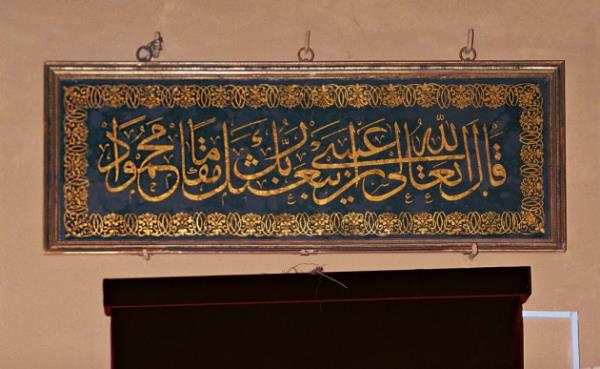 قال الله تعالى عسى ان يبعثك ربك مقاما محمودا